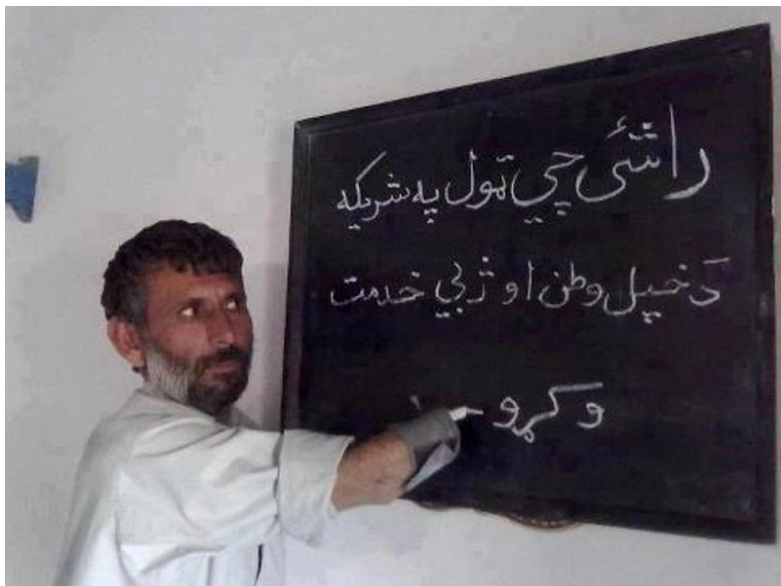 راشئ چې ټول په شریکه
دَ خپل وطن او ژبې خدمت
وکړو